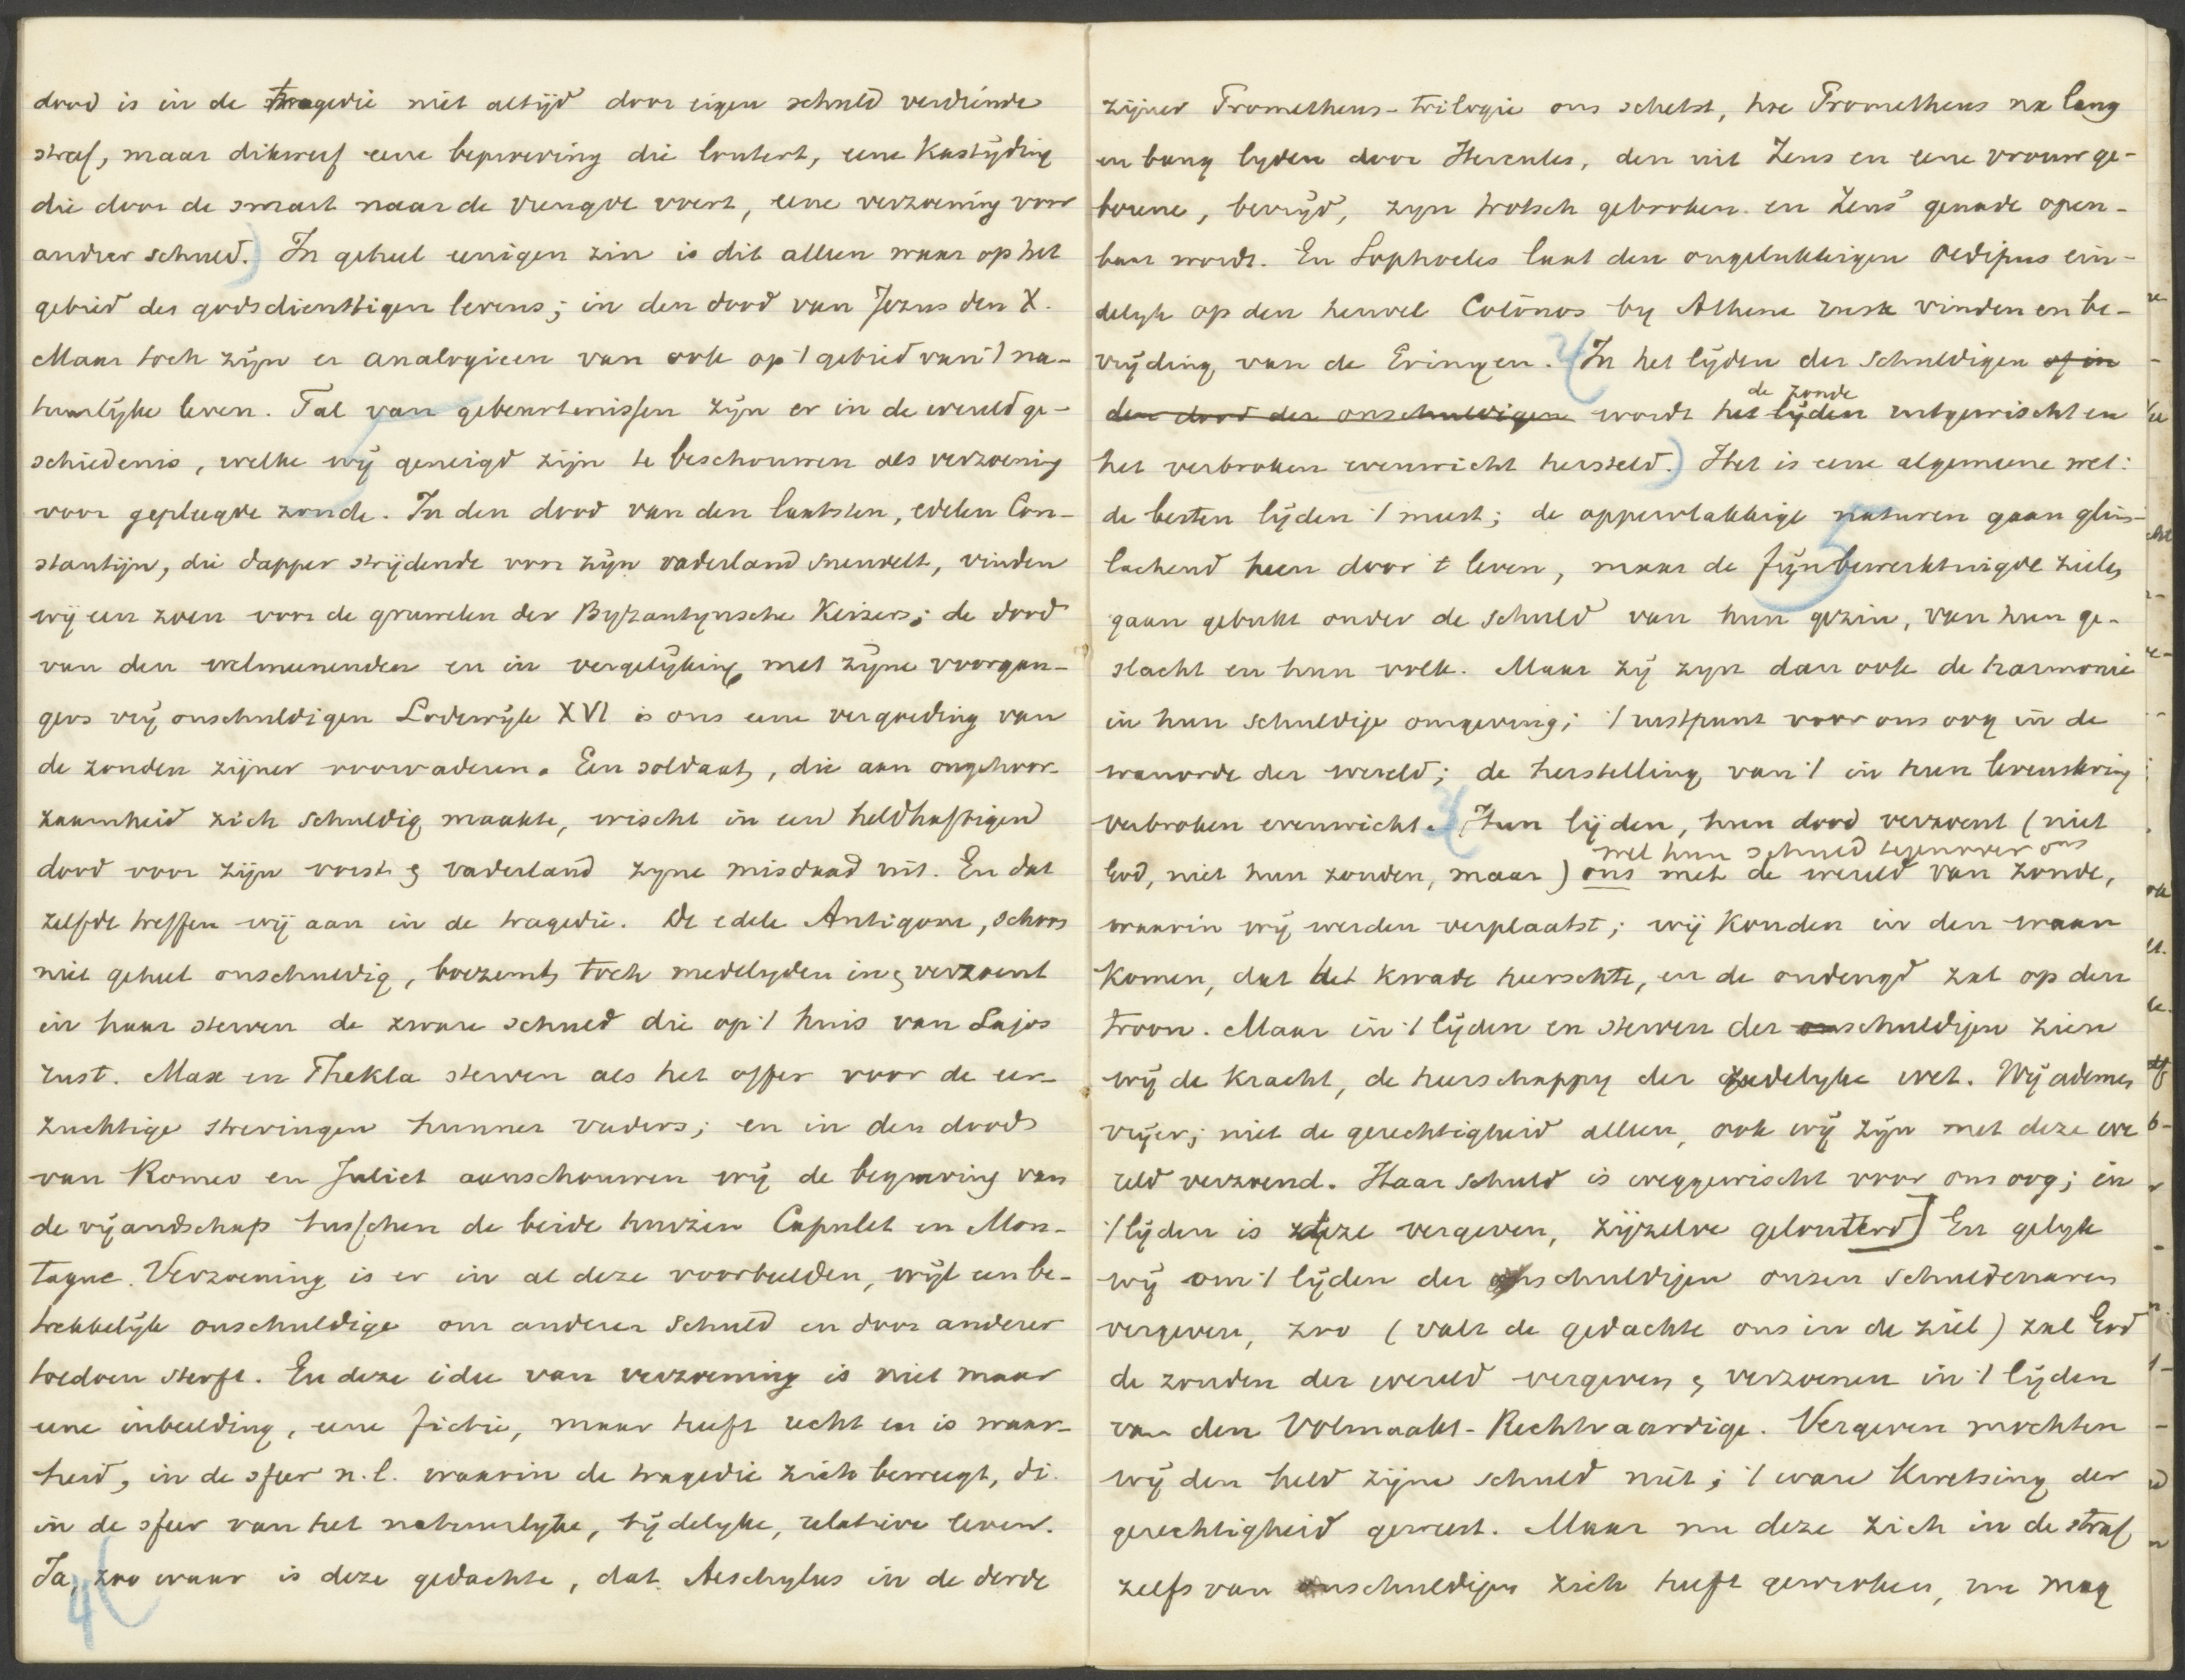 dood is in de tragedie niet altijd door eigen schuld verdiende
straf, maar dikwerf eene beproeving die loutert, eene Kastijding
die door de smart naar de vreugde voert, eene verzoening voor
andrer schuld.) In geheel eenigen zin is dit alleen waar op het
gebied des godsdienstigen levens; in den dood van Jezus den X.
Maar toch zijn er analogieen van ook op 't gebied van 't na-
tuurlijke leven. Tal van gebeurtenissen zijn er in de wereldge-
schiedenis, welke wij geneigd zijn te beschouwen als verzoening
voor gepleegde zonde. In den dood van den laatsten, edelen Con-
stantijn, die dapper strijdende voor zijn vaderland sneuvelt, vinden
wij een zoen voor de gruwelen der Byzantynsche Keizers; de dood
van den welmeenenden en in vergelijking met zijne voorgan-
gers vrij onschuldigen Lodewijk XVI is ons eene vergoeding van
de zonden zijner voorvaderen. Een soldaat, die aan ongehoor-
zaamheid zich schuldig maakte, wischt in een heldhaftigen
dood voor zijn vorst & vaderland zyne misdaad uit. En dat
zelfde treffen wij aan in de tragedie. De edele Antigone, schoon
niet geheel onschuldig, boezemt toch medelyden in & verzoent
in haar sterven de zware schuld die op 't huis van Lajos
rust. Max en Thekla sterven als het offer voor de eer-
zuchtige strevingen hunner vaders; en in den dood
van Romeo en Juliet aanschouwen wij de begraving van
de vijandschap tusschen de beide huizen Capulet en Mon-
tague. Verzoening is er in al deze voorbeelden, wijl een be-
trekkelijk onschuldige om anderer schuld en door anderer
toedoen sterft. En deze idee van verzoening is niet maar
eene inbeelding, eene fictie, maar heeft recht en is waar-
heid, in de sfeer n.l. waarin de tragedie zich beweegt, di.
in de sfeer van het natuurlyke, tijdelyke, relatieve leven.
4( Ja, zoo waar is deze gedachte, dat Aeschylus in de derde
zijner Prometheus-trilogie ons schetst, hoe Prometheus na lang
en bang lyden door Hercules, den uit Zeus en eene vrouw ge-
borene, bevrijd, zyn trotsch gebroken en Zeus' genade open-
baar wordt. En Sophocles laat den ongelukkigen Oedipus ein-
delyk op den heuvel Colōnos by Athene rust vinden en be-
vrijding van de Erinyen. 2( In het lijden der schuldigen of in
den dood der onschuldigen wordt het lijden uitgewischt en
de zonde
het verbroken evenwicht hersteld.) Het is eene algemeene wet:
de besten lijden 't meest; de oppervlakkige naturen gaan glim-
lachend heen door 't leven, maar de fijnbewerktuigde zielen
5
gaan gebukt onder de schuld van hun gezin, van hun ge-
slacht en hun volk. Maar zij zyn dan ook de harmonie
in hun schuldige omgeving; 't rustpunt voor ons oog in de
wanorde der wereld; de herstelling van 't in hun levenskring
verbroken evenwicht. 3( Hun lijden, hun dood verzoent (niet
God, niet hun zonden, maar) ons met de wereld van zonde,
met hun schuld tegenover ons
waarin wij werden verplaatst; wij konden in den waan
komen, dat het kwade heerschte, en de ondeugd zat op den
troon. Maar in 't lijden en sterven der onschuldigen zien
wij de kracht, de heerschappy der zedelyke wet. Wij ademen
vrijer; niet de gerechtigheid alleen, ook wij zijn met deze we
reld verzoend. Haar schuld is weggewischt voor ons oog; in
't lijden is deze vergeven, zijzelve gelouterd] En gelyk
wij om 't lijden der onschuldigen onzen schuldenaren
vergeven, zoo (valt de gedachte ons in de ziel) zal God
de zonden der wereld vergeven & verzoenen in 't lijden
van den Volmaakt-Rechtvaardige. Vergeven mochten
wij den held zijne schuld niet; 't ware Kwetsing der
gerechtigheid geweest. Maar nu deze zich in de straf
zelfs van onschuldigen zich heeft gewroken, nu mag